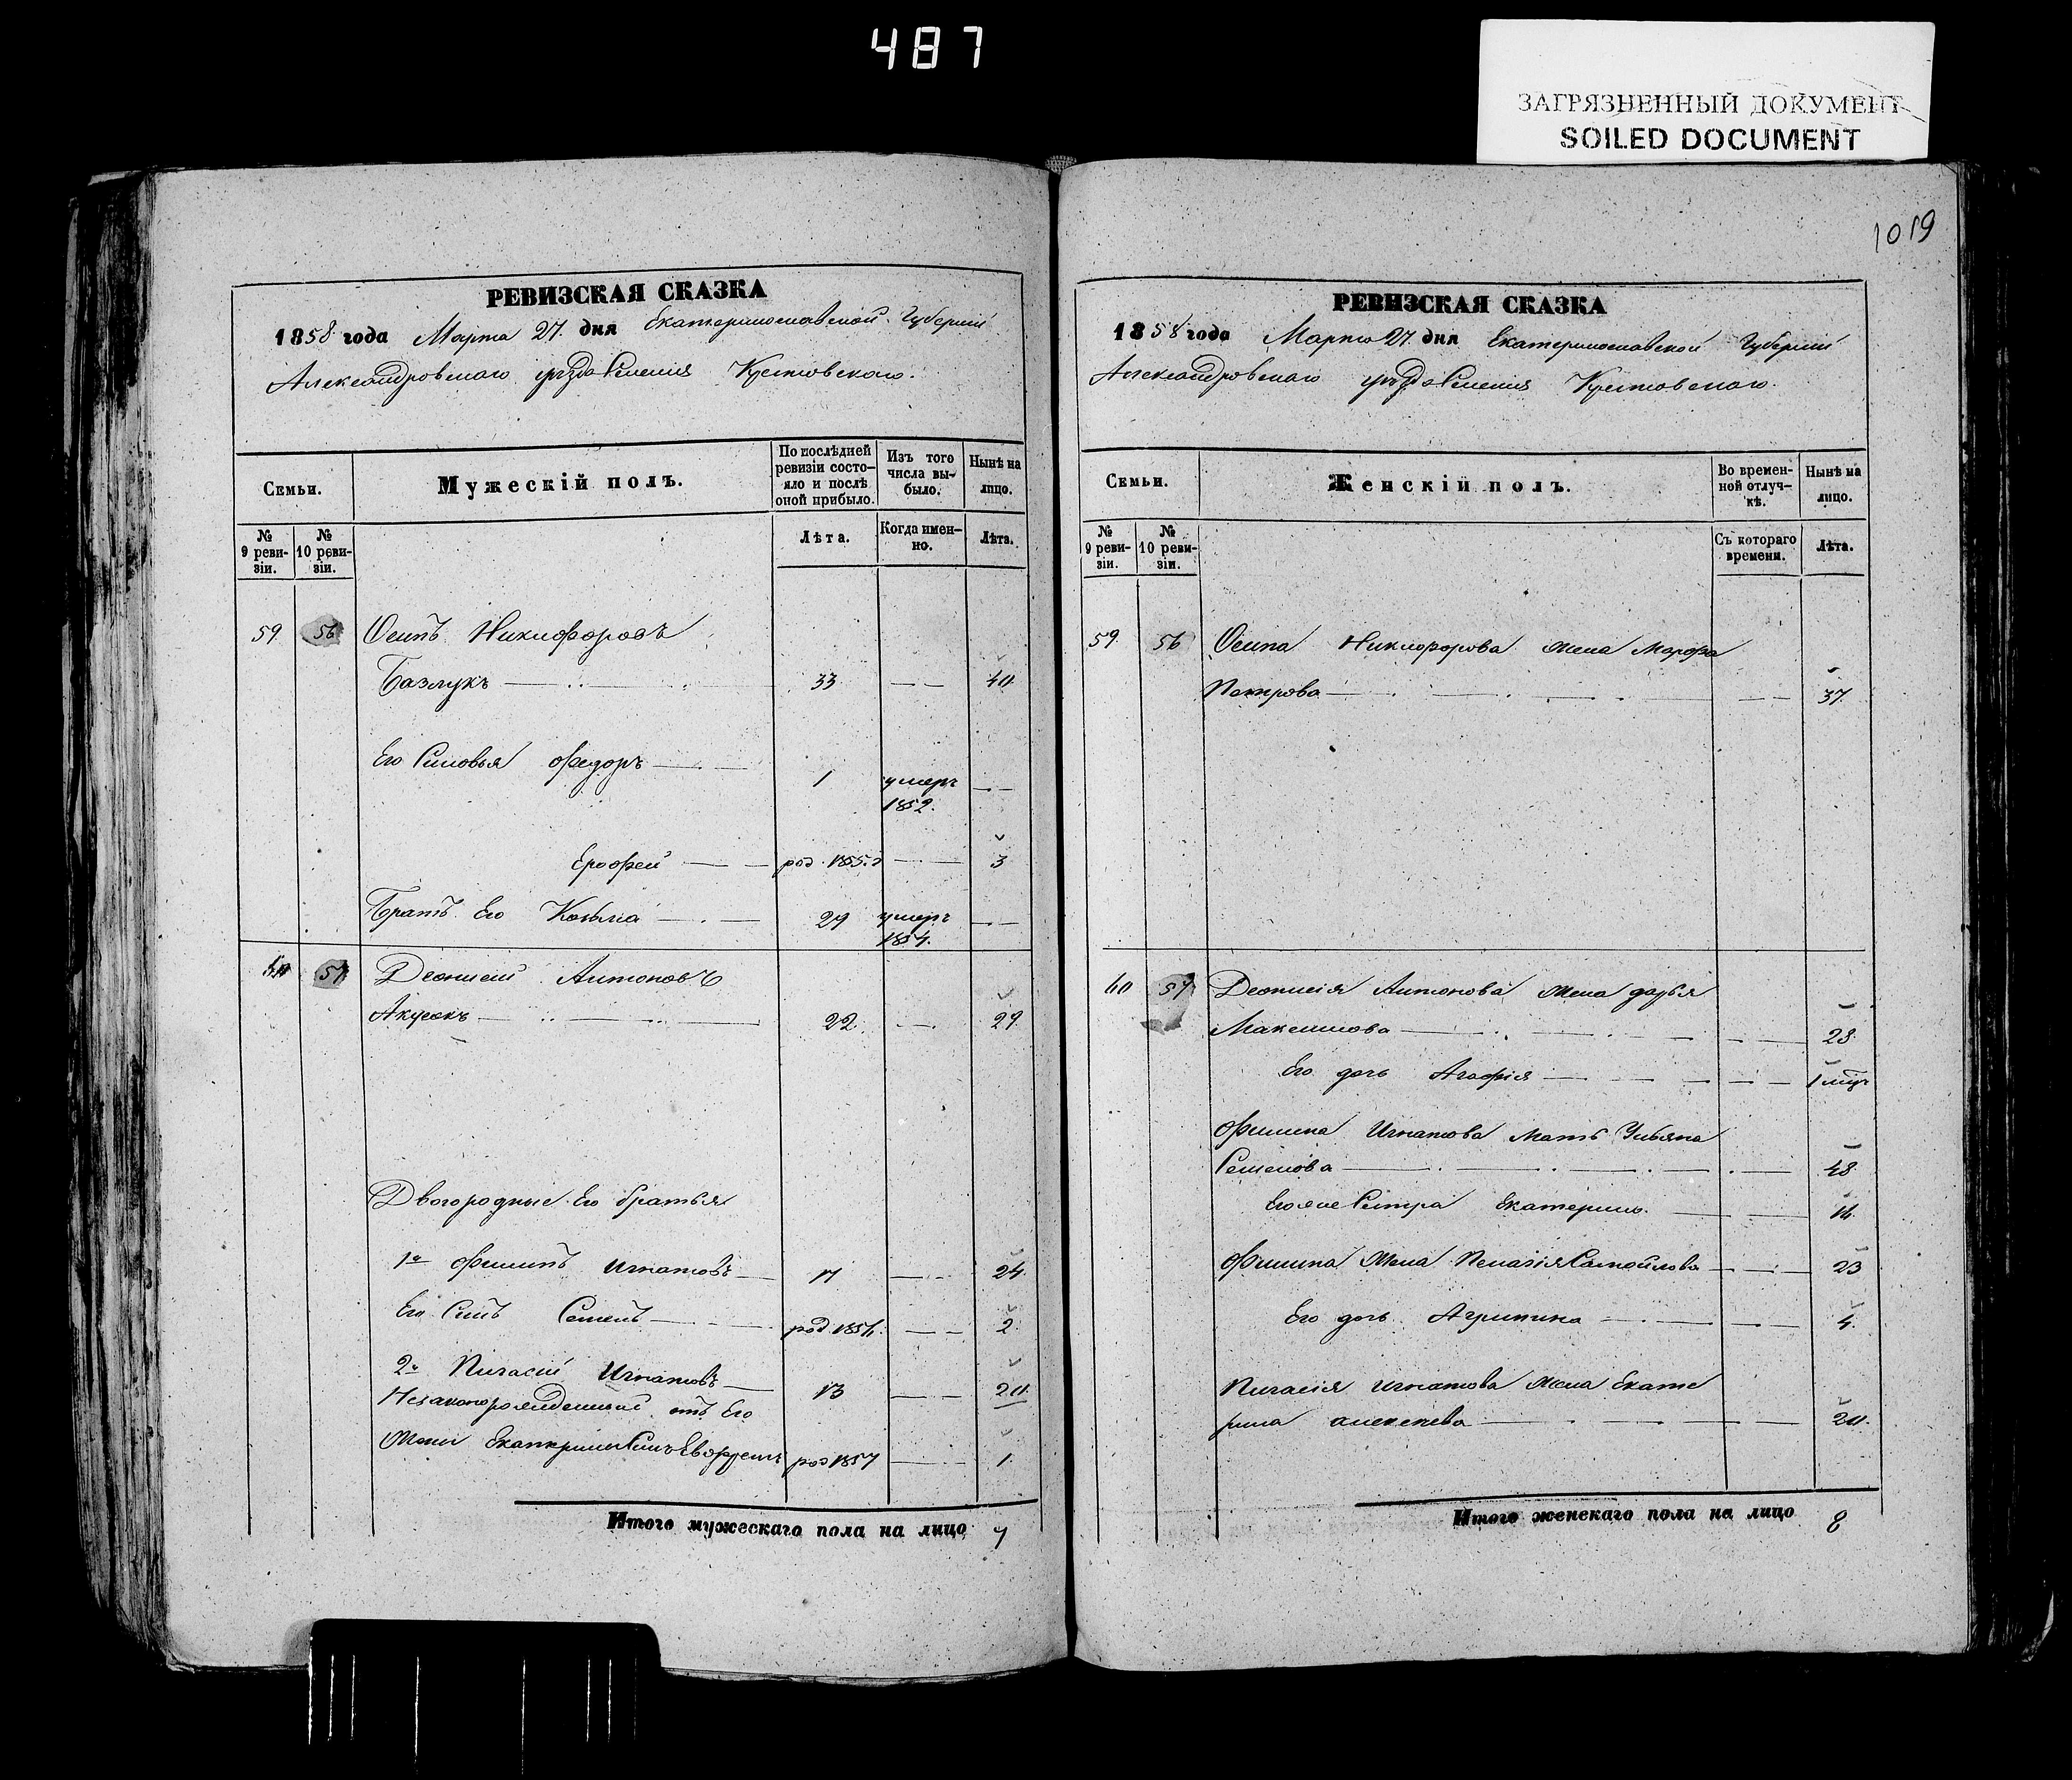 487
ЗАГРЯЗНЕННЫЙ ДОКУМЕНТ
SOILED DOCUMENT
РЕВИЗСКАЯ СКАЗКА
1858 года Марта 27. дня Екатеринославской Губерніи
Александровскаго уѣзда Селенія
Семьи.
Мужескій полъ.
По послѣдней ревизіи состо-
яло и послѣ
оной прибыло.
Изъ того
числа вы-
было.
Нынѣ на
лицо.
№
9 реви-
зіи.
№
10 реви-
зіи.
Лѣта.
Когда имен-
но.
Лѣта.
59. 56 Осипъ Никифоровъ
Базлукъ 33 40
Его Сыновья Федоръ 1 умеръ
1852.
Ерофей род. 1855. 3
Братъ Его Козьма 29 умеръ
1854.
60 57 Деонисий Антоновъ
22. 29
Двоюродные Его братья
1й Филипъ Игнатовъ 17 24.
Его Сынъ Семенъ род. 1856. 2.
2й Пигасій Игнатовъ 13 20.
Незаконорожденный отъ Его
Жены Екатерины Сынъ род 1857 1.
Итого мужескаго пола на лицо 7
1019
РЕВИЗСКАЯ СКАЗКА
1858 года Марта 27. дня Екатеринославской Губерніи
Александровскаго уѣзда Селенія
Семьи.
Женскій полъ.
Во времен-
ной отлуч-
кѣ.
Нынѣ на
лицо.
№
9 реви-
зіи.
№
10 реви-
зіи.
Съ котораго
времени.
Лѣта.
59. 56 Осипа Никифорова жена Марфа
Петрова 37.
60 57 Деонисія Антонова Жена дарья
Максимова 28.
Его дочь Агафія 1
Филипа Игнатова мать Ульяна
Семенова 48
Его же Сестра Екатерина 16.
Филипа Жена Пелагія Самойлова 23
Его дочь Агрипина 4.
Пигасія Игнатова Жена Екате
рина алексеева 20.
Итого женскаго пола на лицо 8